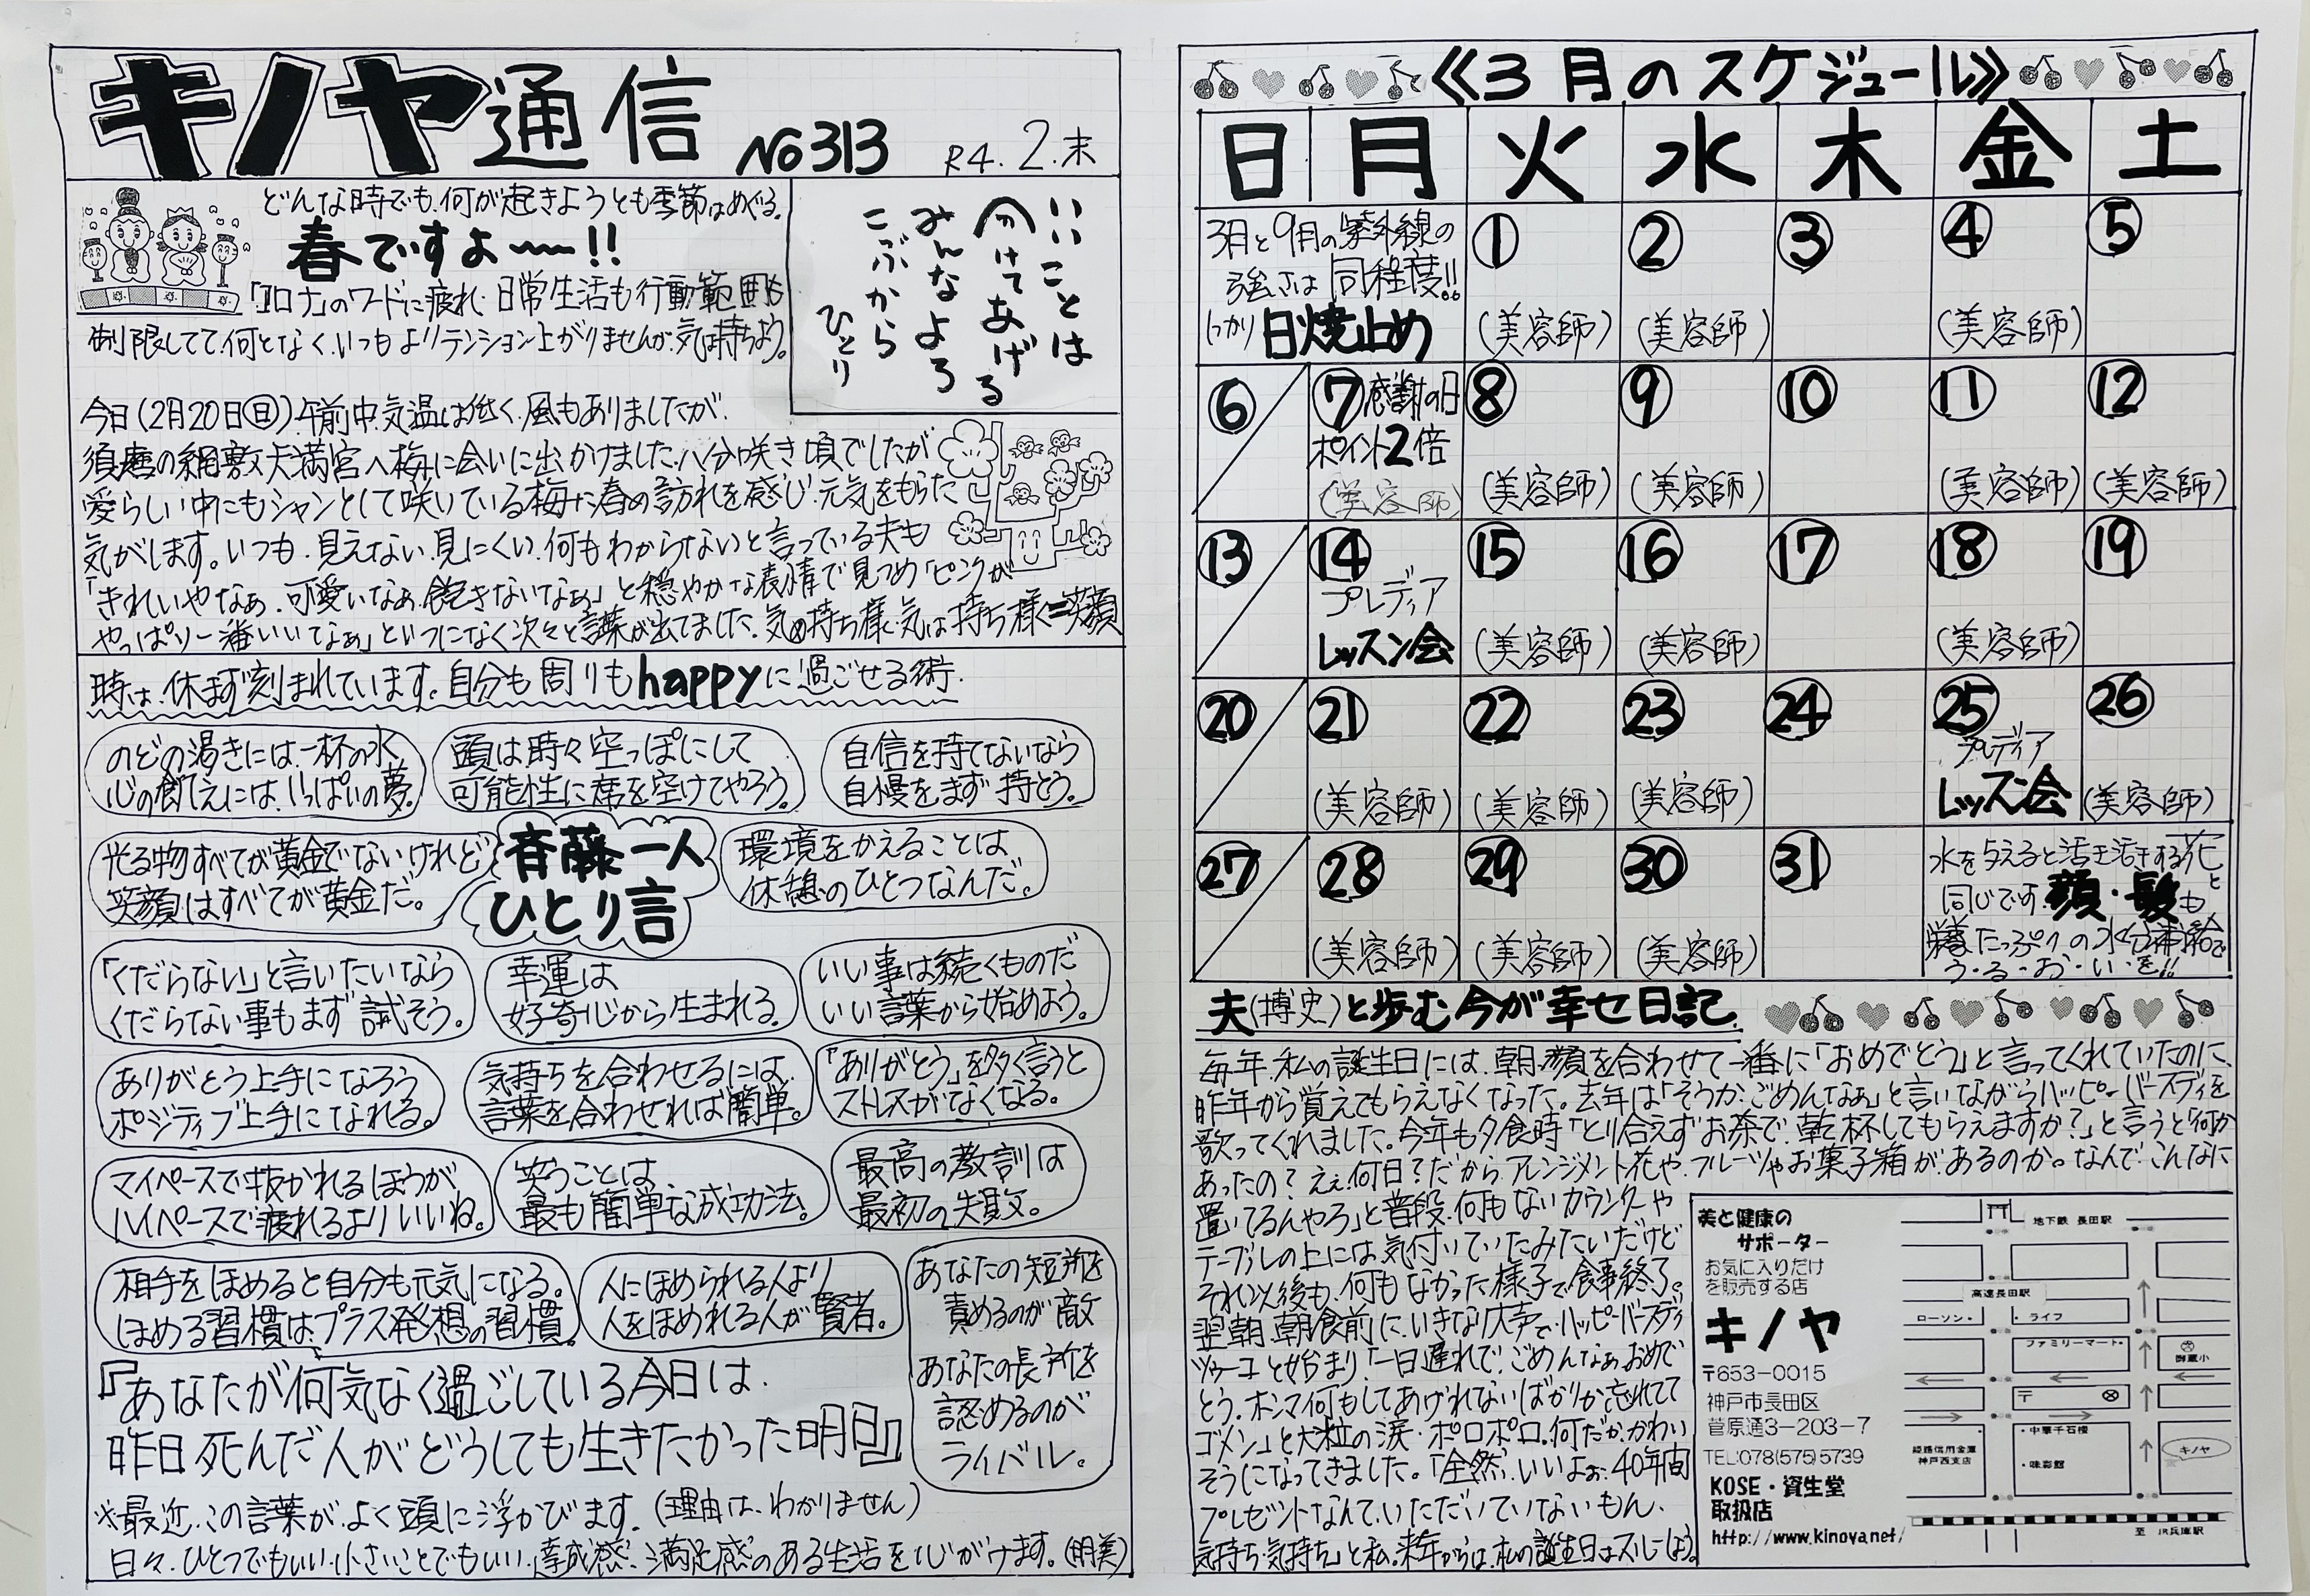 キノヤ通信 No313 R4.2.末
どんな時でも何が起きようとも季節はめぐる。
春ですよ〜〜!!
「コロナ」のワードに疲れ、日常生活も行動範囲も
制限してて何となく、いつもよりテンション上がりませんが、気は持ちよう。
いいことは
分けてあげる
みんなよろ
こぶから
ひとり
今日(2月20日㊐)午前中、気温は低く、風もありましたが、
須磨の綱敷天満宮へ梅に会いに出かけました。八分咲き頃でしたが
愛らしい中にもシャンとして咲いている梅に春の訪れを感じ、元気をもらった
気がします。いつも、見えない、見にくい、何もわからないと言っている夫も
「きれいやなぁ、可愛いなぁ、飽きないなぁ」と穏やかな表情で見つめ「ピンクが
やっぱり一番いいなぁ」といつになく次々と言葉が出てました。気の持ち様、気は持ち様＜＝笑顔
時は、休まず刻まれています。自分も周りもhappyに過ごせる術.
のどの渇きには、一杯の水、
心の飢えには、いっぱいの夢。
頭は時々空っぽにして
可能性に席を空けてやろう。
自信を持てないなら
自慢をまず持とう。
光る物すべてが黄金でないけれど
笑顔はすべてが黄金だ。
斉藤一人
ひとり言
環境をかえることは
休憩のひとつなんだ。
「くだらない」と言いたいなら
くだらない事もまず試そう。
幸運は
好奇心から生まれる。
いい事は続くものだ
いい言葉から始めよう。
ありがとう上手になろう
ポジティブ上手になれる。
気持ちを合わせるには、
言葉を合わせれば簡単。
「ありがとう」を多く言うと
ストレスがなくなる。
マイペースで抜かれるほうが
ハイペースで疲れるよりいいね。
笑うことは
最も簡単な成功法。
最高の教訓は
最初の失敗。
相手をほめると自分も元気になる。
ほめる習慣は、プラス発想の習慣。
人にほめられる人より
人をほめれる人が賢者。
あなたの短所を
責めるのが敵
あなたの長所を
認めるのが
ライバル。
『あなたが何気なく過ごしている今日は、
昨日死んだ人がどうしても生きたかった明日』
※最近、この言葉が、よく頭に浮かびます。(理由は、わかりません)
日々、ひとつでもいい、小さいことでもいい、達成感、満足感のある生活を心がけます。(明美)
≪3月のスケジュール≫
日 月 火 水 木 金 土
3月と9月の紫外線の
強さは同程度!!
しっかり日焼止め
① ② ③ ④ ⑤
(美容師) (美容師) (美容師)
⑥ ⑦感謝の日 ⑧ ⑨ ⑩ ⑪ ⑫
ポイント2倍
(美容師) (美容師) (美容師) (美容師) (美容師)
⑬ ⑭ ⑮ ⑯ ⑰ ⑱ ⑲
プレディア
レッスン会 (美容師) (美容師) (美容師)
⑳ ㉑ ㉒ ㉓ ㉔ ㉕ ㉖
プレディア
(美容師) (美容師) (美容師) レッスン会 (美容師)
㉗ ㉘ ㉙ ㉚ ㉛
(美容師) (美容師) (美容師)
水を与えると活き活きする花と
同じです。顔・髪も
栄養たっぷりの水分補給で
う・る・お・い・を!!
夫(博史)と歩む今が幸せ日記.
毎年、私の誕生日には、朝、顔を合わせて一番に「おめでとう」と言ってくれていたのに、
昨年から覚えてもらえなくなった。去年は「そうか、ごめんなぁ」と言いながらハッピーバースディを
歌ってくれました。今年も夕食時「とり合えずお茶で、乾杯してもらえますか?」と言うと「何か
あったの? えぇ何日?だから、アレンジメント花や、フルーツやお菓子箱が、あるのか。なんで、こんなに
置いてるんやろ」と普段、何もないカウンターや
テーブルの上には、気付いていたみたいだけど
それ以後も、何もなかった様子で食事終了。
翌朝、朝食前に、いきなり大声で、ハッピーバースディ
ツゥーユーと始まり「一日遅れで、ごめんなぁ、おめで
とう、ホンマ何もしてあげれないばかりか忘れてて
ゴメン」と大粒の涙・ポロポロ。何だか、かわい
そうになってきました。「全然、いいよぉ、40年間
プレゼントなんて、いただいていないもん、
気持ち、気持ち」と私。来年からは、私の誕生日はスルーしよう。
美と健康の
サポーター
お気に入りだけ
を販売する店
キノヤ
〒653-0015
神戸市長田区
菅原通3-203-7
TEL:078(575)5739
KOSE・資生堂
取扱店
http://www.kinoya.net/
地下鉄 長田駅
高速長田駅
ローソン・
・ライフ
ファミリーマート・
御蔵小
〒
・中華千石楼
姫路信用金庫
神戸西支店
・味彩館
キノヤ
至 JR兵庫駅